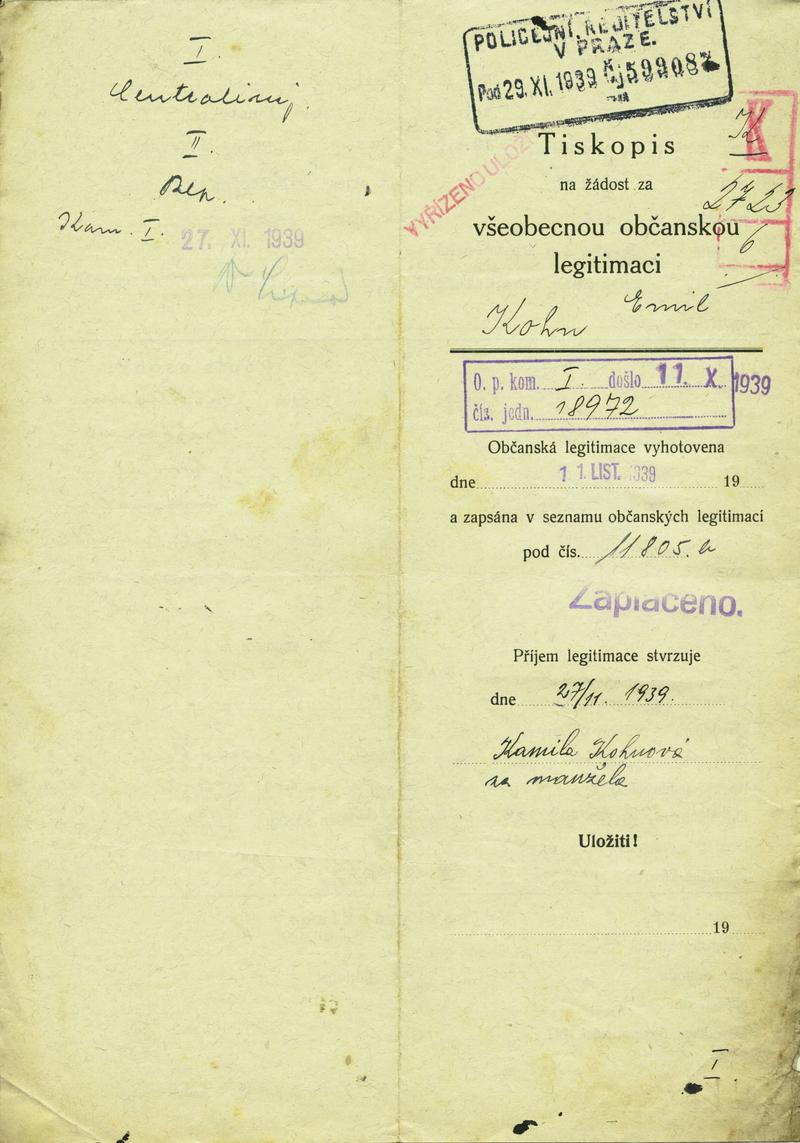 I.
II.
Kom. I.
27. XI. 1939
POLICEJNÍ ŘEDITELSTVÍ
V PRAZE.
Pod 29. XI. 1939 čj 599087
K
VYŘÍZENO ULOŽ
Tiskopis
na žádost za
2723
všeobecnou občanskou
6
legitimaci
Kohn Emil
O. p. kom. I. došlo 11. X. 1939
čís. jedn. 18972
Občanská legitimace vyhotovena
dne 11. LIST. 1939 19
a zapsána v seznamu občanských legitimaci
pod čís. 11805.
Zaplaceno.
Příjem legitimace stvrzuje
dne 27/11. 1939.
Kamila Kohnová
za manžela
Uložiti!
19
I